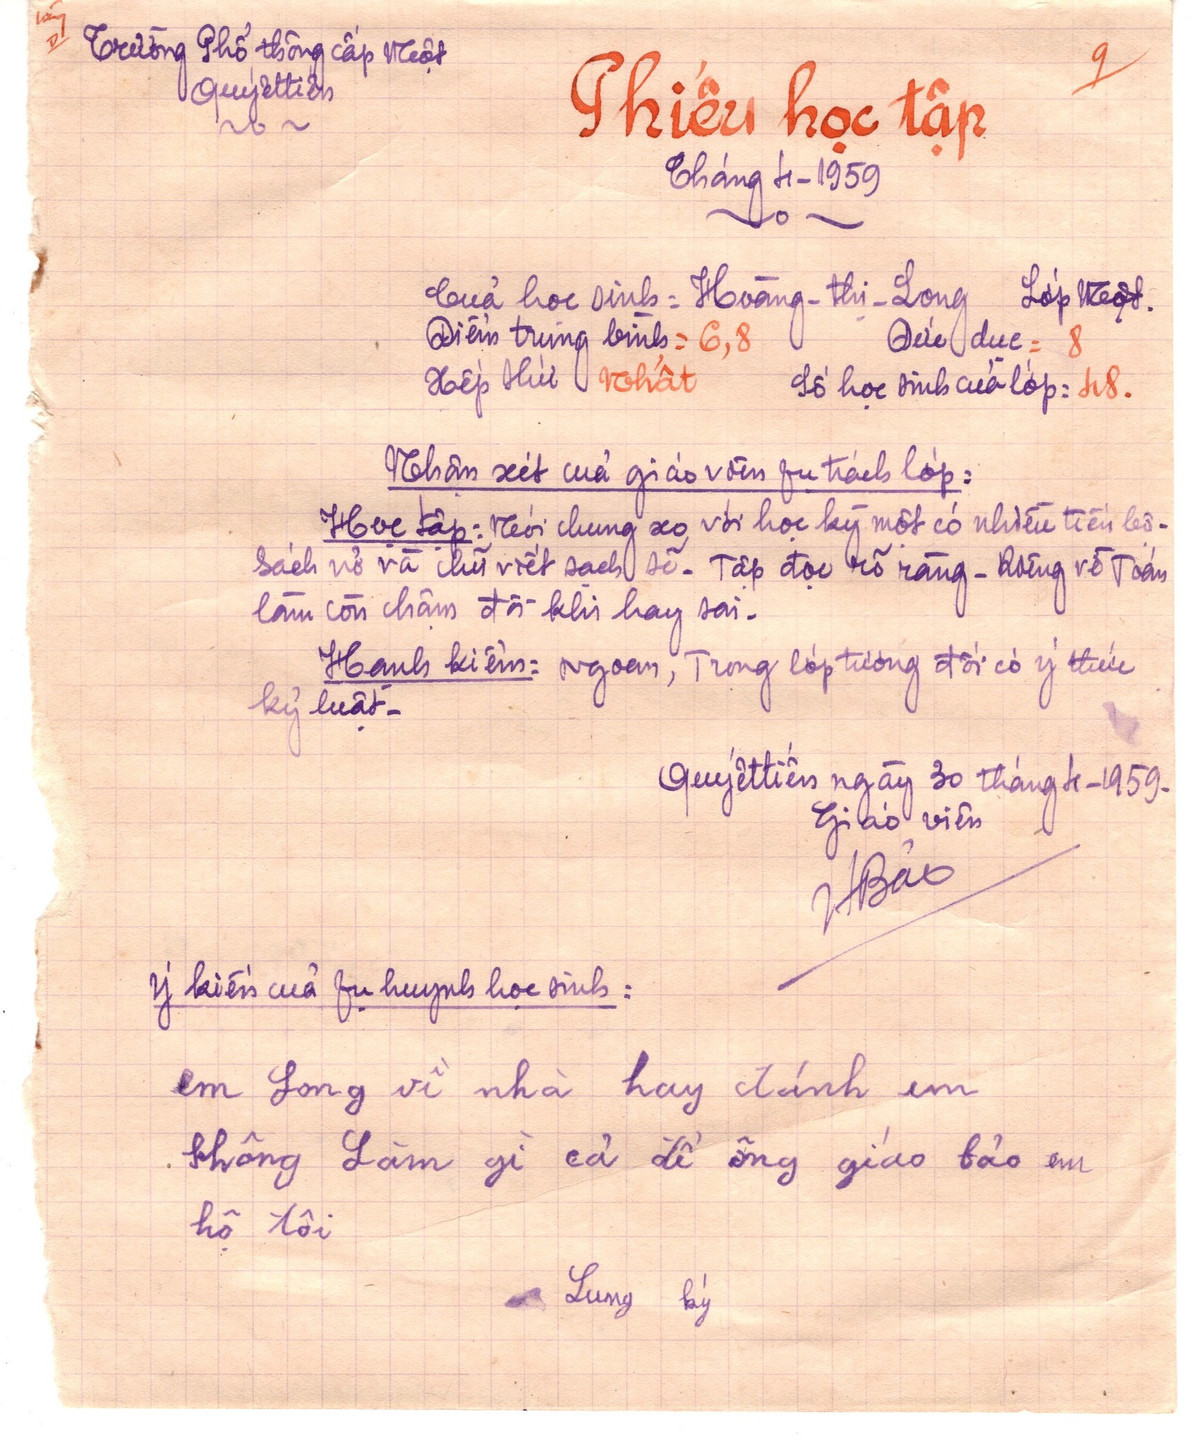 Trường Phổ thông cấp Một
Quyết tiến
9
Phiếu học tập
Tháng 4-1959
Của học sinh = Hoàng-thị-Long Lớp Một.
Điểm trung bình = 6,8 Đức dục = 8
Xếp thứ Nhất Số học sinh của lớp: 48.
Nhận xét cuả giáo viên fụ trách lớp:
Học tập: Nói chung so với học kỳ một có nhiều tiến bộ-
Sách vở và chữ viết sạch sẽ- Tập đọc rõ ràng- Riêng về Toán
làm còn chậm đôi khi hay sai.
Hạnh kiểm: Ngoan, Trong lớp tương đối có ý thức
kỷ luật-
Quyết tiến ngày 30 tháng 4-1959-
Giáo viên
HBảo
Ý kiến cuả fụ huynh học sinh:
em Long về nhà hay đánh em
không Làm gì cả để ông giáo bảo em
hộ tôi
Lung ký